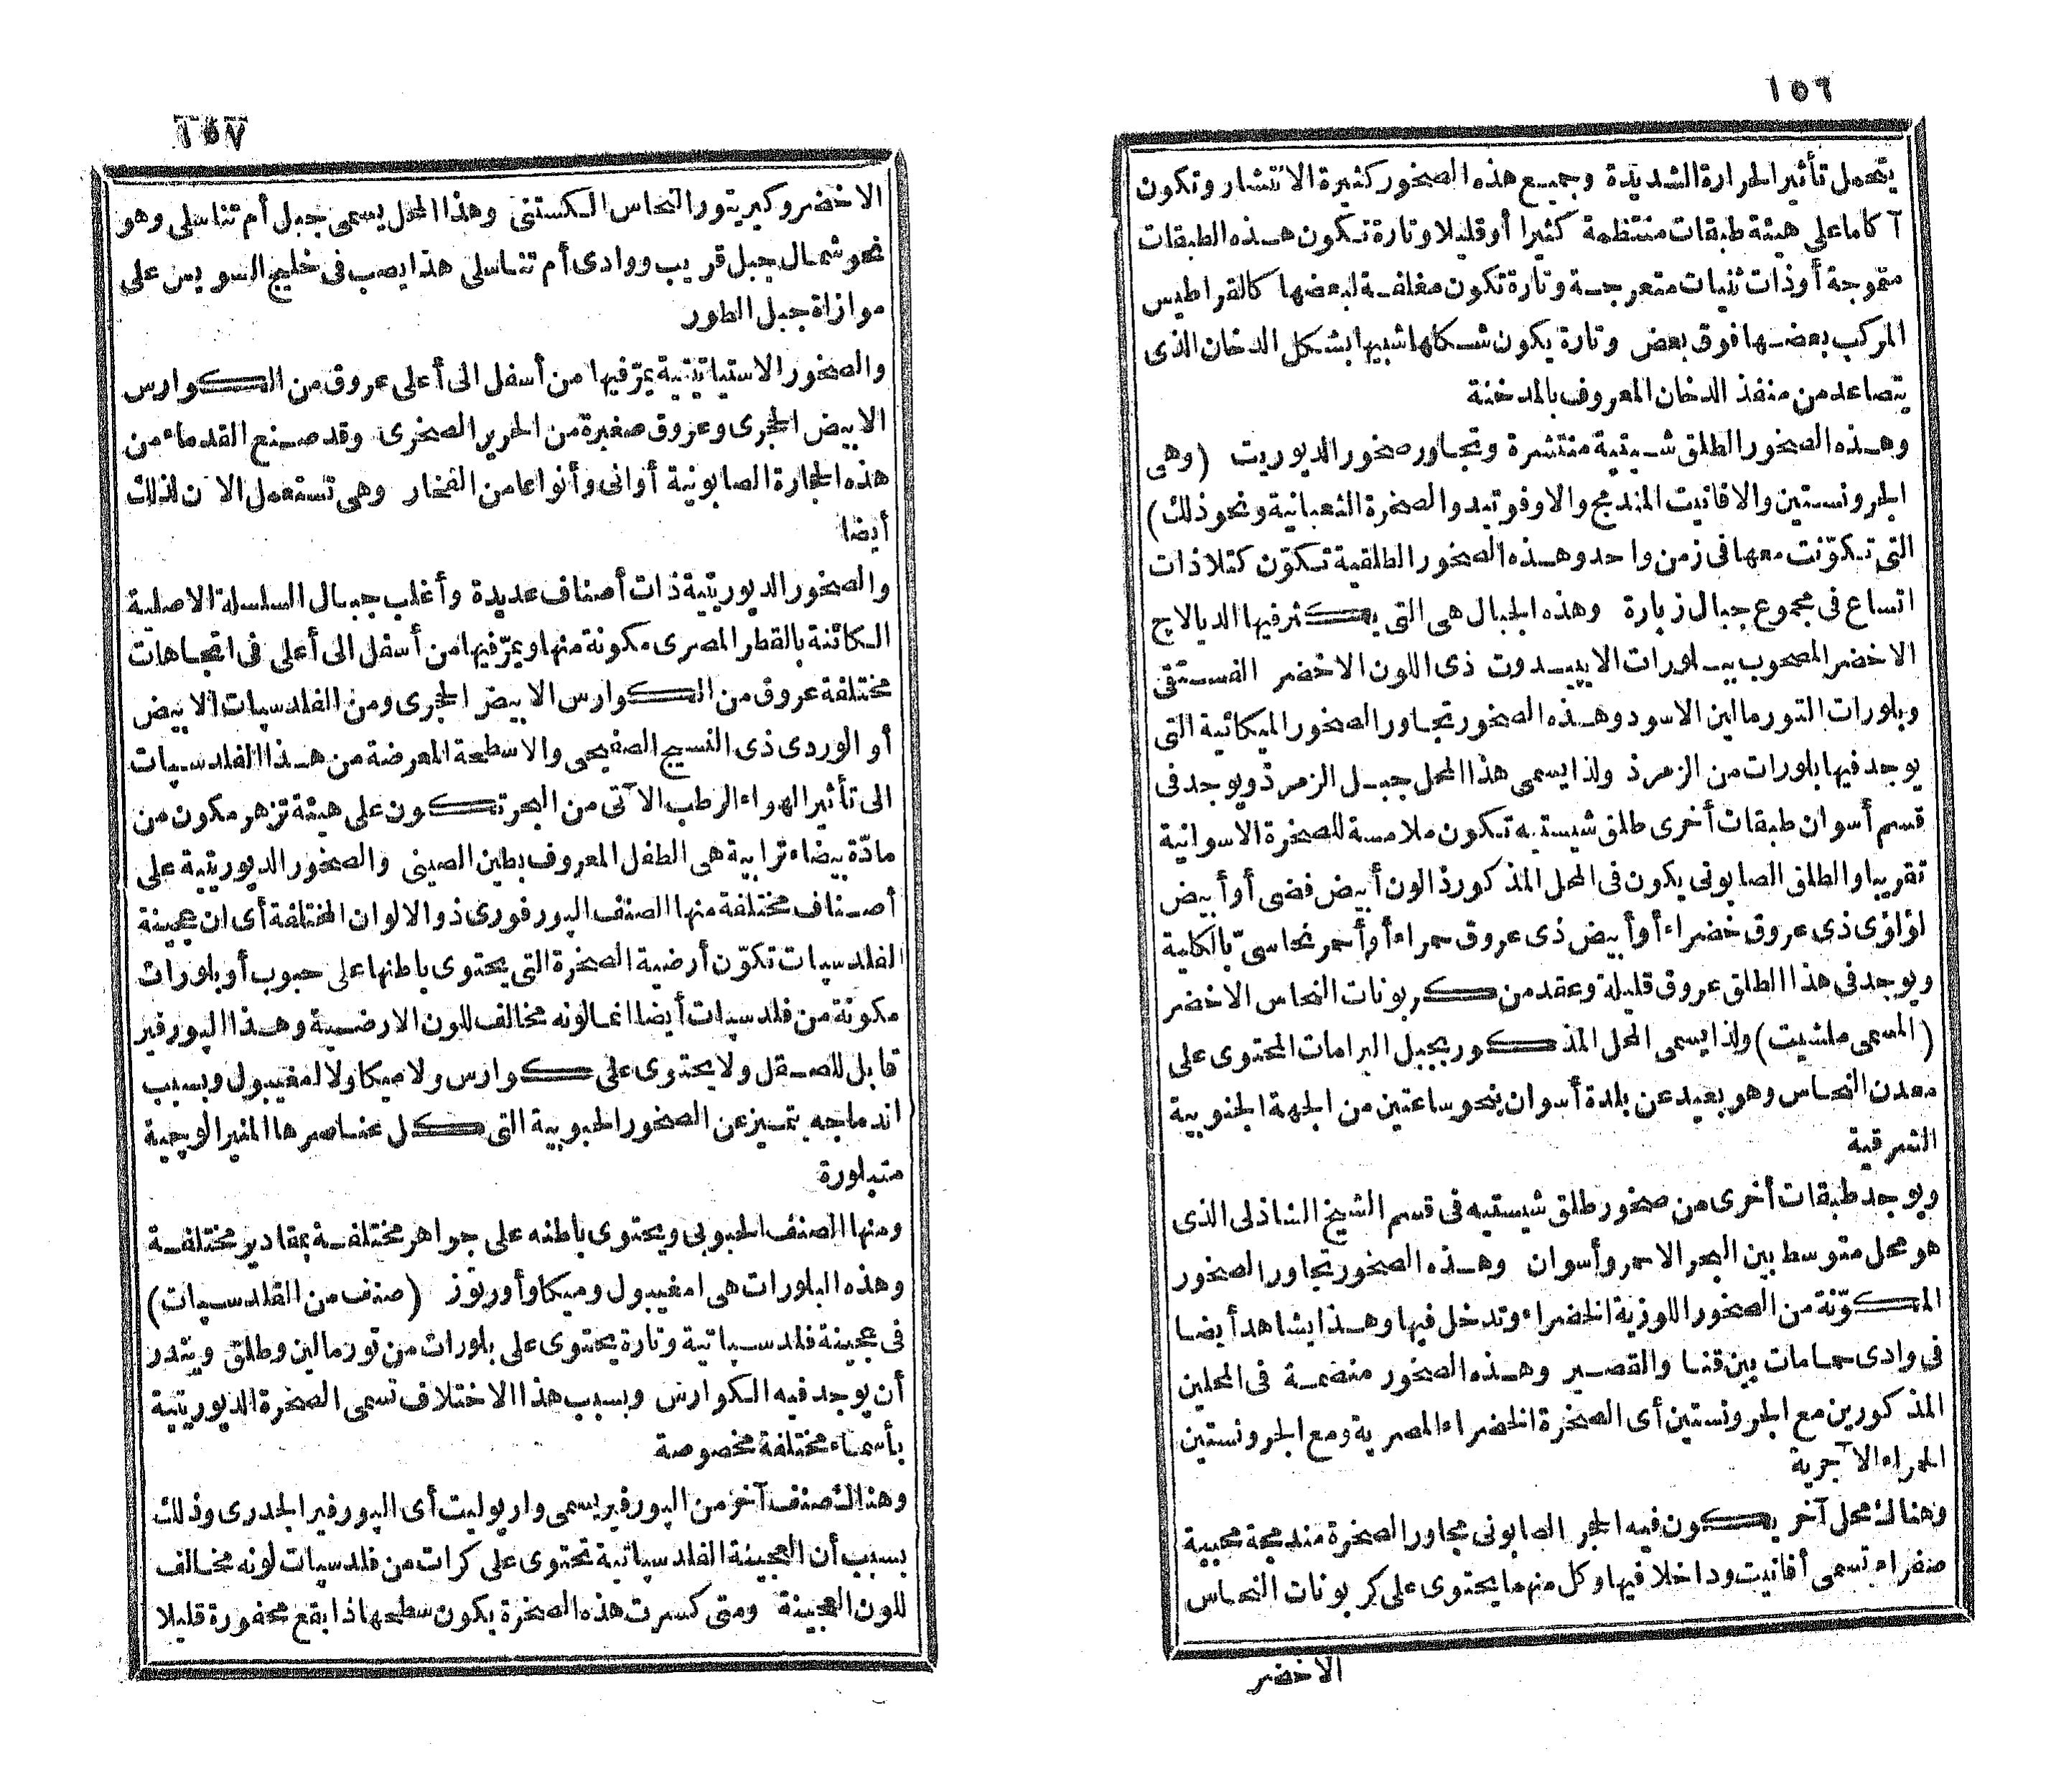 ١٥٦
يتحمل تأثير الحرارة الشديدة وجميع هذه الصخور كثيرة الانتشار وتكون
آكاما على هيئة طبقات منتظمة كثيرا أو قليلا وتارة تكون هذه الطبقات
متموجة أو ذات ثنيات متعرجة وتارة تكون مغلفة لبعضها كالقراطيس
المركب بعضها فوق بعض وتارة يكون شكلها شبيها بشكل الدخان الذى
يتصاعد من منفذ الدخان المعروف بالمدخنة
وهذه الصخور الطلق شيستية منتشرة وتجاور صخور الديوريت (وهى
الجرونستين والافانيت المندمج والاوفوتيد والصخرة الثعبانية ونحو ذلك)
التى تكوّنت معها فى زمن واحد وهذه الصخور الطلقية تكوّن كتلا ذات
اتساع فى مجموع جبال زبارة وهذه الجبال هى التى يكثر فيها الديالاج
الاخضر المصحوب ببلورات الايبيدوت ذى اللون الاخضر الفستقى
وبلورات التورمالين الاسود وهذه الصخور تجاور الصخور الميكائية التى
يوجد فيها بلورات من الزمرذ ولذا يسمى هذا المحل جبل الزمرذ ويوجد فى
قسم أسوان طبقات أخرى طلق شيستيه تكون ملامسة للصخرة الاسوانية
تقريبا والطلق الصابونى يكون فى المحل المذكور ذا لون أبيض فضى أو أبيض
لؤلؤى ذى عروق خضراء أو أبيض ذى عروق حمراء أو أحمر نحاسىّ بالكلية
ويوجد فى هذا الطلق عروق قليلة وعقد من كربونات النحاس الاخضر
(المسمى ملشيت) ولذا يسمى المحل المذكور بجبل البرامات المحتوى على
معدن النحاس وهو بعيد عن بلدة أسوان بنحو ساعتين من الجهة الجنوبية
الشرقية
ويوجد طبقات أخرى من صخور طلق شيستيه فى قسم الشيخ الشاذلى الذى
هو محل متوسط بين البحر الاحمر وأسوان وهذه الصخور تجاور الصخور
المكوّنة من الصخور اللوزية الخضراء وتدخل فيها وهذا يشاهد أيضا
فى وادى حمامات بين قنا والقصير وهذه الصخور منضمة فى المحلين
المذكورين مع الجرونستين أى الصخرة الخضراء المصرية ومع الجرونستين
الحمراء الآجرية
وهناك محل آخر يكون فيه الحجر الصابونى مجاور الصخرة مندمجة محببة
صفراء تسمى أفانيت وداخلا فيها وكل منهما يحتوى على كربونات النحاس
الاخضر
١٥٧
الاخضر وكبريتور النحاس الكستنى وهذا المحل يسمى جبل أم تناسلى وهو
نحو شمال جبل قريب ووادى أم تناسلى هذا يصب فى خليج السويس على
موازاة جبل الطور
والصخور الاستياتيتية يمرّ فيها من أسفل الى أعلى عروق من الكوارس
الابيض الحجرى وعروق صغيرة من الحرير الصخرى وقد صنع القدماء من
هذه الحجارة الصابونية أوانى وأنواعا من الفخار وهى تستعمل الآن لذلك
أيضا
والصخور الديوريتية ذات أصناف عديدة وأغلب جبال السلسلة الاصلية
الكائنة بالقطر المصرى مكونة منها ويمرّ فيها من أسفل الى أعلى فى اتجاهات
مختلفة عروق من الكوارس الابيض الحجرى ومن الفلدسپات الابيض
أو الوردى ذى النسيج الصفيحى والاسطحة المعرضة من هذا الفلدسپات
الى تأثير الهواء الرطب الآتى من البحر تكون على هيئة تزهر مكون من
مادّة بيضاء ترابية هى الطفل المعروف بطين الصينى والصخور الديوريتية على
أصناف مختلفة منها الصنف الپورفورى ذو الالوان المختلفة أى ان عجينة
الفلدسپات تكوّن أرضية الصخرة التى يحتوى باطنها على حبوب أو بلورات
مكونة من فلدسپات أيضا انما لونه مخالف للون الارضية وهذا الپورفير
قابل للصقل ولا يحتوى على كوارس ولا ميكا ولا لمفيبول وبسبب
اندماجه يتميز عن الصخور الحبوبية التى كل عناصرها المنيرالوجية
متبلورة
ومنها الصنف الحبوبى ويحتوى باطنه على جواهر مختلفة بمقادير مختلفة
وهذه البلورات هى امفيبول وميكا وأورتوز (صنف من الفلدسپات)
فى عجينة فلدسپاتية وتارة يحتوى على بلورات من تورمالين وطلق ويندر
أن يوجد فيه الكوارس وبسبب هذا الاختلاف تسمى الصخرة الديوريتية
بأسماء مختلفة مخصوصة
وهناك صنف آخر من الپورفير يسمى واريوليت أى الپورفير الجدرى وذلك
بسبب أن العجينة الفلدسپاتية تحتوى على كرات من فلدسپات لونه مخالف
للون العجينة ومتى كسرت هذه الصخرة يكون سطحها ذا بقع محفورة قليلا